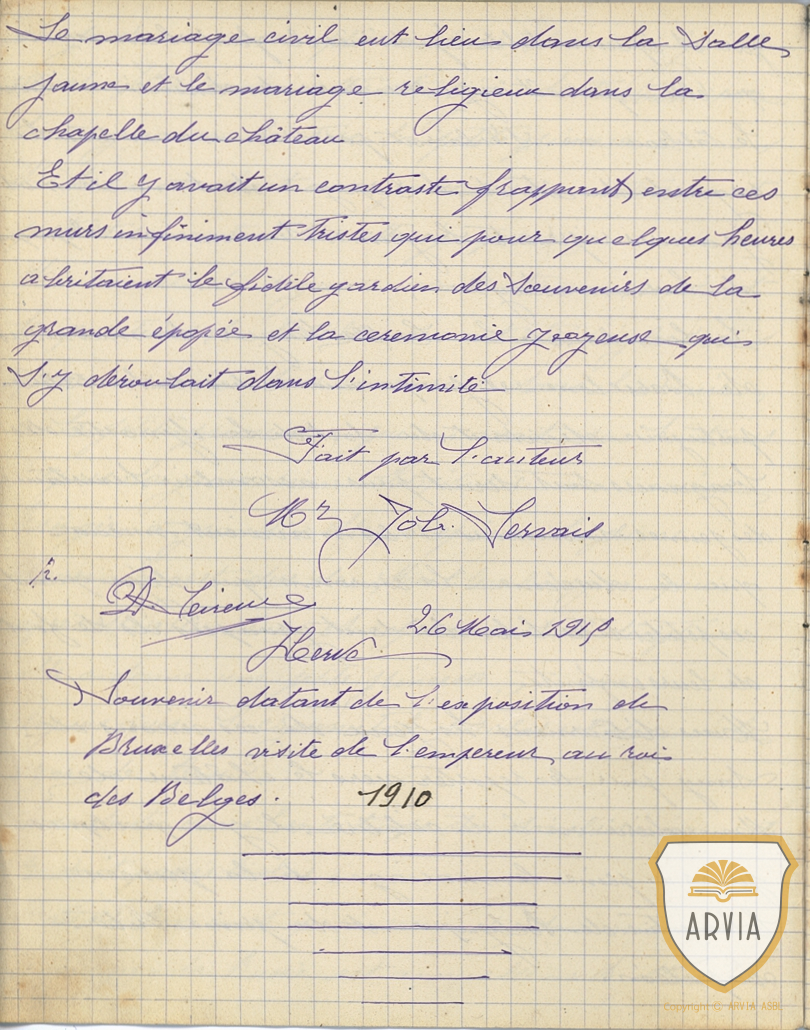 Le mariage civil eut lieu dans la Salle
jaune et le mariage religieux dans la
chapelle du château
Et il y avait un contraste frappant, entre ces
murs infiniment tristes qui pour quelques heures
abritaient le fidèle gardien des Souvenirs de la
grande épopée et la ceremonie joyeuse qui
S'y déroulait dans l'intimité
Fait par l'auteur
Mr Job. Servais
D.
Herve
26 Mais 191
Souvenir datant de l'exposition de
Bruxelles visite de l'empereur, au rois
des Belges. 1910
ARVIA
Copyright © ARVIA ASBL